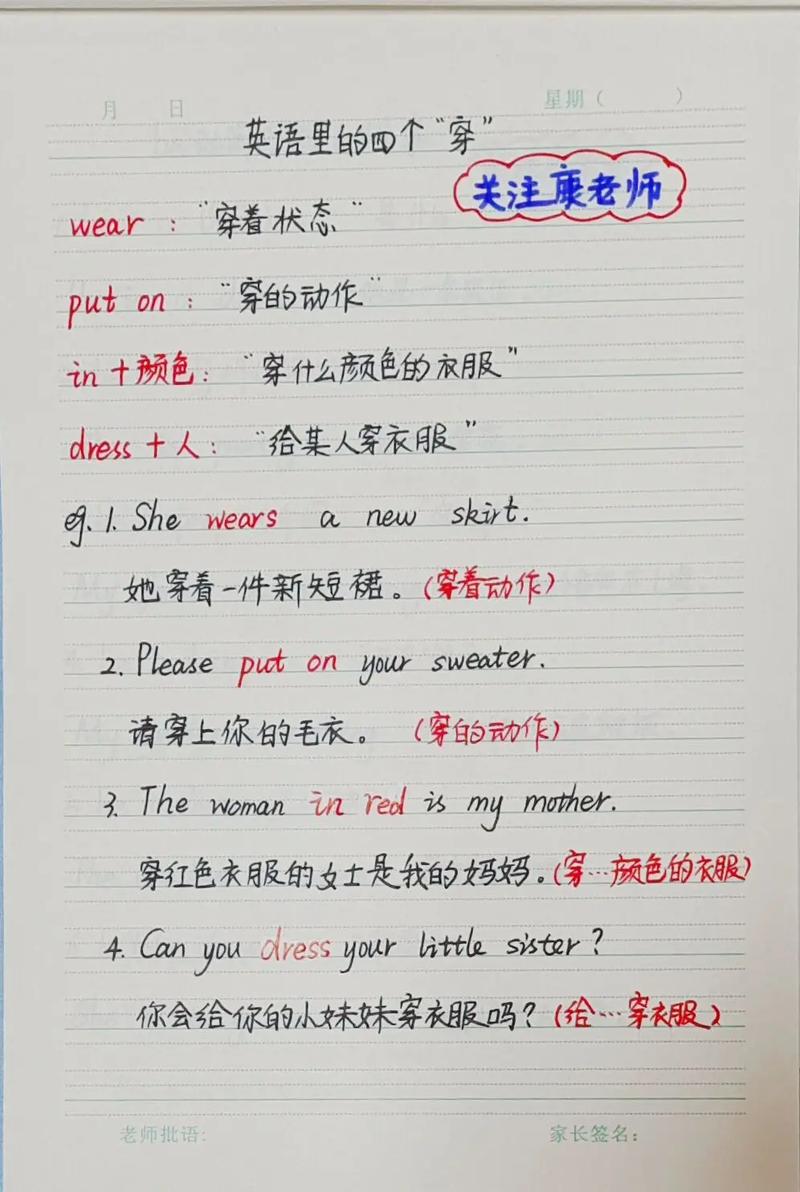 月 日 星期（ ）
英语里的四个“穿”
关注康老师
wear："穿着状态"
put on："穿的动作"
in+颜色："穿什么颜色的衣服"
dress+人："给某人穿衣服"
eg. 1. She wears a new skirt.
她穿着一件新短裙。(穿着动作)
2. Please put on your sweater.
请穿上你的毛衣。(穿的动作)
3. The woman in red is my mother.
穿红色衣服的女士是我的妈妈。(穿…颜色的衣服)
4. Can you dress your little sister?
你会给你的小妹妹穿衣服吗？(给…穿衣服)
老师批语: 家长签名: